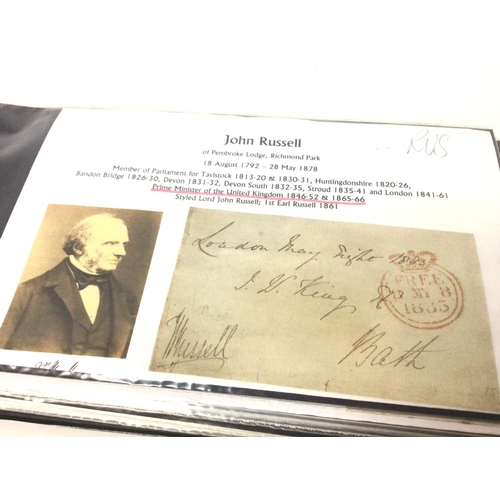 John Russell
RUS
of Pembroke Lodge, Richmond Park
18 August 1792 – 28 May 1878
Member of Parliament for Tavistock 1813-20 & 1830-31, Huntingdonshire 1820-26,
Bandon Bridge 1826-30, Devon 1831-32, Devon South 1832-35, Stroud 1835-41 and London 1841-61
Prime Minister of the United Kingdom 1846-52 & 1865-66
Styled Lord John Russell; 1st Earl Russell 1861
London May Eight 1835
King
FREE
MY
1835
Russell
Bath